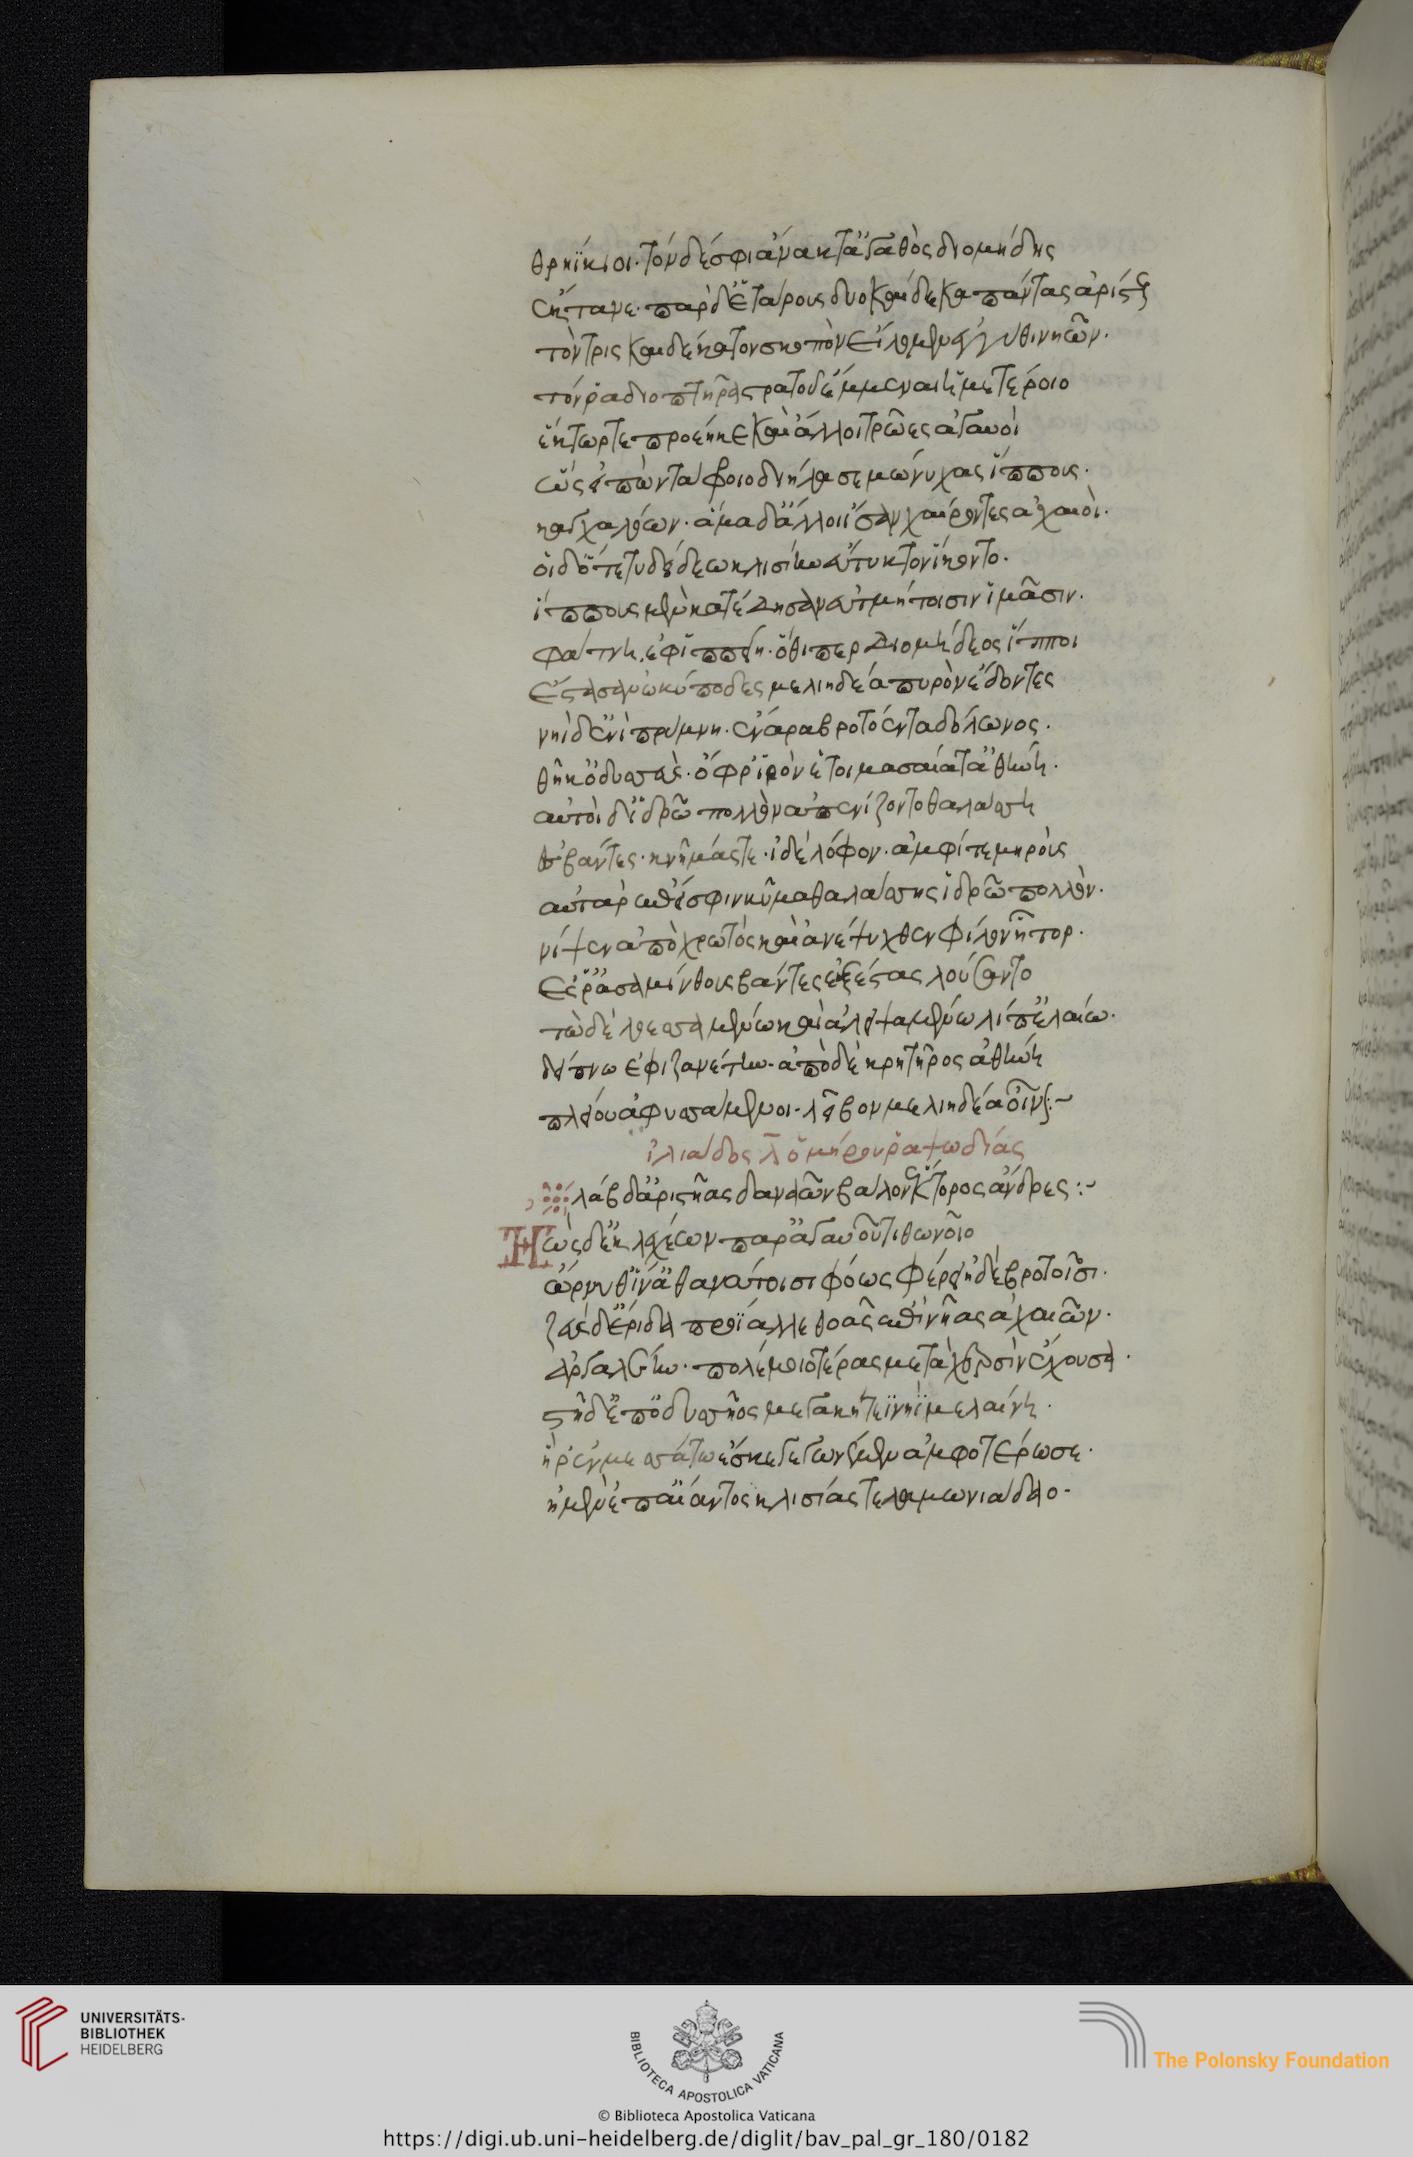 θρηΐκιοι· τὸν δέ σφι ἄνακτ' ἀγαθὸς διομήδης
ἔκτανε· παρ δ' ἑτάρους δυοκαίδεκα πάντας ἀρίστους
τὸν τρισκαιδέκατον σκοπὸν εἵλομεν ἐγγύθι νηῶν·
τόν ῥα διοπτῆρα στρατοῦ ἔμμεναι ἡμετέροιο
ἕκτωρ τε προέηκε καὶ ἄλλοι τρῶες ἀγαυοὶ
ὣς εἰπὼν τάφροιο διήλασε μώνυχας ἵππους·
καγχαλόων· ἅμα δ' ἄλλοι ἴσαν χαίροντες ἀχαιοὶ·
οἱ δ' ὅτε τυδείδεω κλισίην εὔτυκτον ἵκοντο·
ἵππους μὲν κατέδησαν ἐϋτμήτοισιν ἱμᾶσιν·
φάτνη ἐφ' ἱππείη· ὅθι περ διομήδεος ἵπποι
ἕστασαν ὠκύποδες μελιηδέα πυρὸν ἔδοντες
νηῒ δ' ἐνὶ πρύμνη· ἔναρα βροτόεντα δόλωνος·
θῆκ' ὀδυσσεὺς· ὄφρ' ἱρὸν ἑτοιμασαίατ' ἀθήνη·
αὐτοὶ δ' ἱδρῶ πολλὸν ἀπενίζοντο θαλάσση
ἐσβάντες· κνήμάς τε· ἰδὲ λόφον· ἀμφί τε μηρούς
αὐτὰρ ἐπεί σφιν κῦμα θαλάσσης ἱδρῶ πολλὸν·
νίψεν ἀπὸ χρωτὸς καὶ ἀνέψυχθεν φίλον ἦτορ·
ἔς ῥ' ἀσαμίνθους βάντες ἐϋξέστας λούσαντο
τὼ δὲ λοεσσαμένω καὶ ἀλειψαμένω λίπ' ἐλαίω·
δείπνω ἐφιζανέτην· ἀπὸ δὲ κρητῆρος ἀθήνη
πλείου ἀφυσσάμενοι· λεῖβον μελιηδέα οἶνον:~
ἰλιάδος λ ὁμήρου ῥαψωδίας
λάβδα δ' ἀριστῆας δαναῶν βάλον ἕκτορος ἄνδρες :~
Ηὼς δ' ἐκ λεχέων παρ' ἀγαυοῦ τιθωνοῖο
ὤρνυθ' ἵν' ἀθανάτοισι φόως φέροι ἠδὲ βροτοῖσι·
ζεὺς δ' ἔριδα προΐαλλε θοὰς ἐπὶ νῆας ἀχαιῶν·
ἀργαλέην· πολέμοιο τέρας μετὰ χερσὶν ἔχουσα·
στῆ δ' ἐπ' ὀδυσσῆος μεγακήτεϊ νηῒ μελαίνη·
ἥ ῥ' ἐν μεσσάτω ἔσκε γεγωνέμεν ἀμφοτέρωσε·
ἠμὲν ἐπ' αἴαντος κλισίας τελαμωνιάδαο·
UNIVERSITÄTS-
BIBLIOTHEK
HEIDELBERG
BIBLIOTECA APOSTOLICA VATICANA
The Polonsky Foundation
© Biblioteca Apostolica Vaticana
https://digi.ub.uni-heidelberg.de/diglit/bav_pal_gr_180/0182